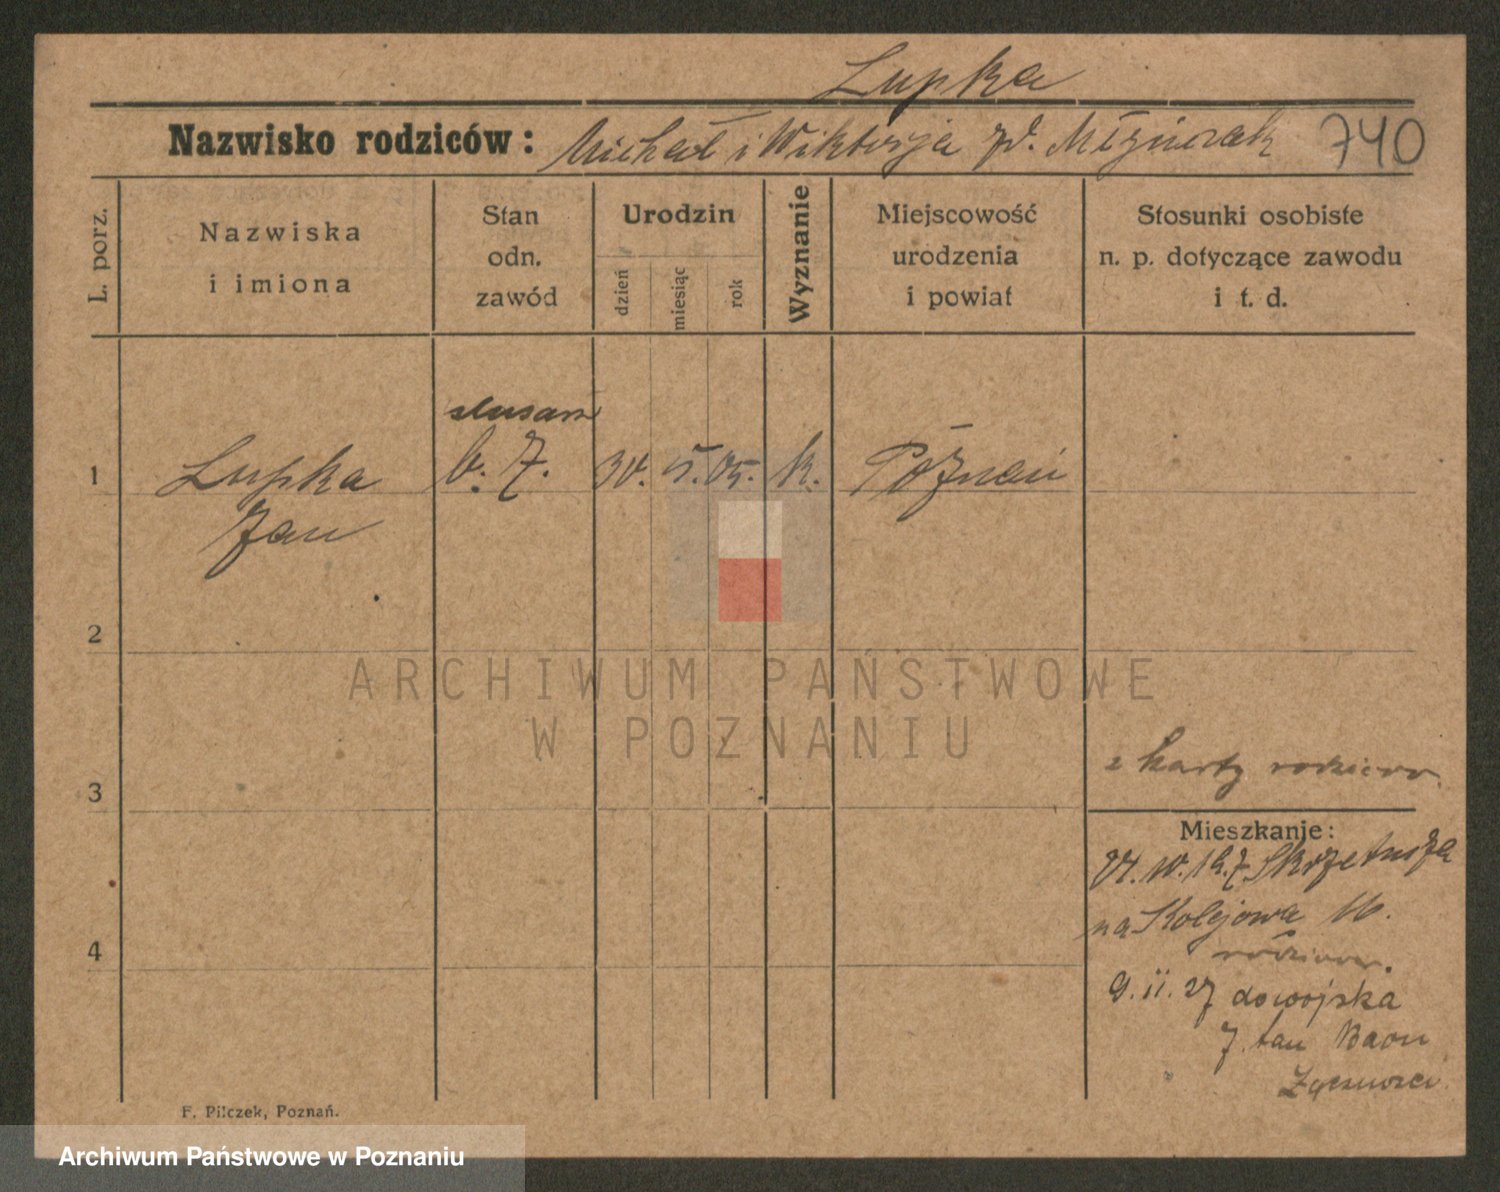 Lupka
Nazwisko rodziców: Michał i Wiktorja zd. 740
L. porz.
Nazwiska
i imiona
Stan
odn.
zawód
Urodzin
dzień
miesiąc
rok
Wyznanie
Miejscowość
urodzenia
i powiat
Stosunki osobiste
n. p. dotyczące zawodu
i t. d.
ślusarz
1 Lupka b. Z. 30. 5. 05. k. Poznań
Jan
2
ARCHIWUM PAŃSTWOWE
W POZNANIU
3
z karty rodziców
Mieszkanje:
na Kolejowa 16.
rodziców.
4
9. II. 27 do wojska
7. Baon
Łączności
F. Pilczek, Poznań.
Archiwum Państwowe w Poznaniu